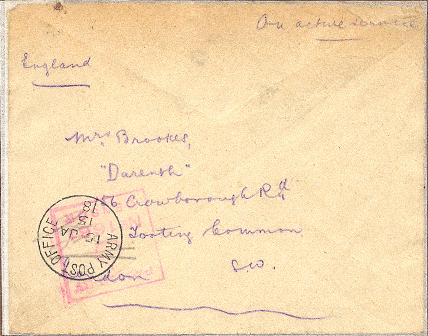 On active service
England
Mrs Brookes,
"Darenth"
56 Crowborough Rd
Tooting Common
S.W.
ARMY POST OFFICE
15 JA
18